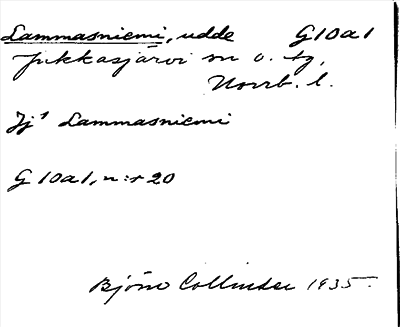 Lammasniemi, udde G10a1
Jukkasjärvi sn o. tg,
Norrb. l.
Jj¹ Lammasniemi
G 10a1, n:r 20
Björn Collinder 1935.